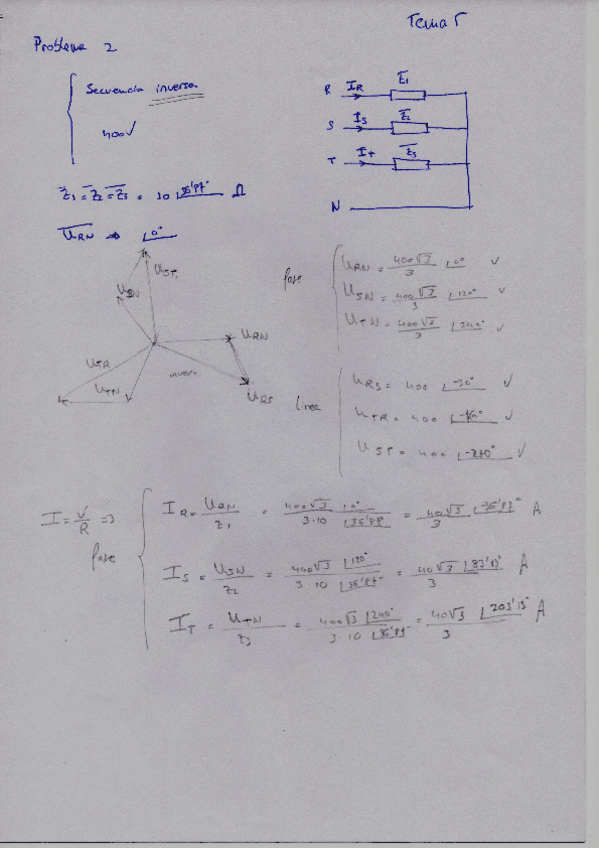 Tema 5
Problema 2
Secuencia inversa
400 V
Z1 = Z2 = Z3 = 10 ∠36'87° Ω
URN ⇒ ∠0°
R IR Z1
S IS Z2
T IT Z3
N
UST
USN
URN
UTR
UTN
inversa
URS
fase
URN = 400√3/3 ∠0° V
USN = 400√3/3 ∠120° V
UTN = 400√3/3 ∠240° V
linea
URS = 400 ∠-30° V
UTR = 400 V
UST = 400 ∠-270° V
I = V/R ⇒
fase
IR = URN/Z1 = 400√3 ∠0° / 3·10 ∠36'87° = 40√3/3 ∠-36'87° A
IS = USN/Z2 = 400√3 ∠120° / 3·10 ∠36'87° = 40√3/3 ∠83'13° A
IT = UTN/Z3 = 400√3 ∠240° / 3·10 ∠36'87° = 40√3/3 ∠203'13° A